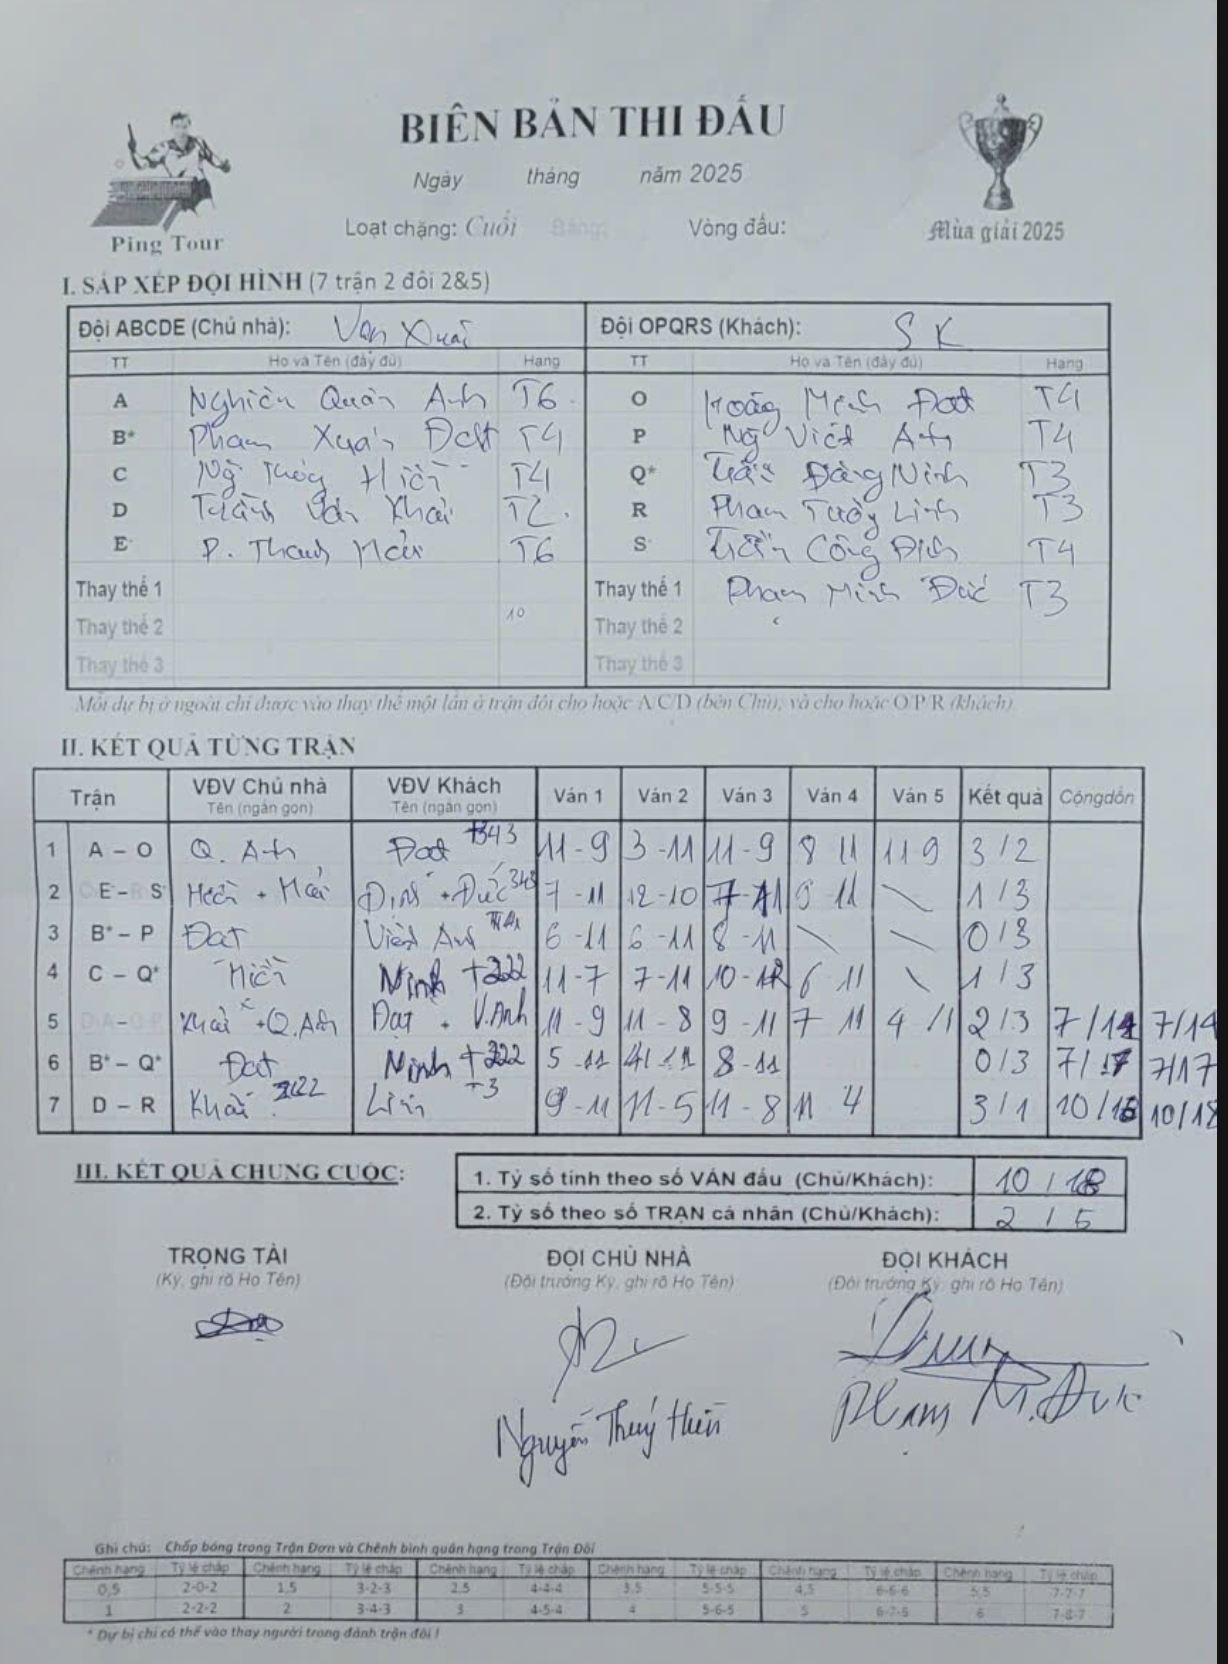 BIÊN BẢN THI ĐẤU
Ngày tháng năm 2025
Loạt chặng: Cuối Bảng: Vòng đấu:
Ping Tour
Mùa giải 2025
I. SẮP XẾP ĐỘI HÌNH (7 trận 2 đôi 2&5)
Đội ABCDE (Chủ nhà): Vạn Xuân Đội OPQRS (Khách): SK
TT Họ và Tên (đầy đủ) Hạng TT Họ và Tên (đầy đủ) Hạng
A Nghiêm Quân Anh T6 O Hoàng Minh Đạt T4
B* Phạm Xuân Đạt T4 P Ng Việt Anh T4
C Ng Thúy Hiền T4 Q* Trần Đăng Ninh T3
D Văn Khải T2 R Phạm Tường Linh T3
E P. Thanh Hải T6 S Trần Công Định T4
Thay thế 1 Thay thế 1 Phạm Minh Đức T3
Thay thế 2 10 Thay thế 2
Thay thế 3 Thay thế 3
Mỗi dự bị ở ngoài chỉ được vào thay thế một lần ở trận đôi cho hoặc A/C/D (bên Chủ), và cho hoặc O/P/R (khách).
II. KẾT QUẢ TỪNG TRẬN
Trận VĐV Chủ nhà VĐV Khách Ván 1 Ván 2 Ván 3 Ván 4 Ván 5 Kết quả Cộng dồn
Tên (ngắn gọn) Tên (ngắn gọn)
1 A – O Q. Anh Đạt +343 11 - 9 3 - 11 11 - 9 8 11 11 9 3 / 2
2 E – S Hiền + Hải Định + Đức 343 7 - 11 12 - 10 7 - 11 9 11 \ 1 / 3
3 B* – P Đạt Việt Anh 6 - 11 6 - 11 8 - 11 \ \ 0 / 3
4 C – Q* Hiền Ninh +222 11 - 7 7 - 11 10 - 12 6 11 \ 1 / 3
5 A – Khải + Q.Anh Đạt + V.Anh 11 - 9 11 - 8 9 - 11 7 11 4 11 2 / 3 7 / 14 7/14
6 B* – Q* Đạt Ninh +222 5 - 11 4 - 11 8 - 11 0 / 3 7 / 17 7/17
7 D – R Khải Linh +3 9 - 11 11 - 5 11 - 8 11 4 3 / 1 10 / 18 10/18
III. KẾT QUẢ CHUNG CUỘC:
1. Tỷ số tính theo số VÁN đấu (Chủ/Khách): 10 / 18
2. Tỷ số theo số TRẬN cá nhân (Chủ/Khách): 2 / 5
TRỌNG TÀI ĐỘI CHỦ NHÀ ĐỘI KHÁCH
(Ký, ghi rõ Họ Tên) (Đội trưởng Ký, ghi rõ Họ Tên) (Đội trưởng Ký, ghi rõ Họ Tên)
Nguyễn Thúy Hiền Phạm M. Đức
Ghi chú: Chấp bóng trong Trận Đơn và Chênh bình quân hạng trong Trận Đôi
Chênh hạng Tỷ lệ chấp Chênh hạng Tỷ lệ chấp Chênh hạng Tỷ lệ chấp Chênh hạng Tỷ lệ chấp Chênh hạng Tỷ lệ chấp Chênh hạng Tỷ lệ chấp
0,5 2-0-2 1,5 3-2-3 2,5 4-4-4 3,5 5-5-5 4,5 6-6-6 5,5 7-7-7
1 2-2-2 2 3-4-3 3 4-5-4 4 5-6-5 5 6-7-6 6 7-8-7
* Dự bị chỉ có thể vào thay người trong đánh trận đôi !